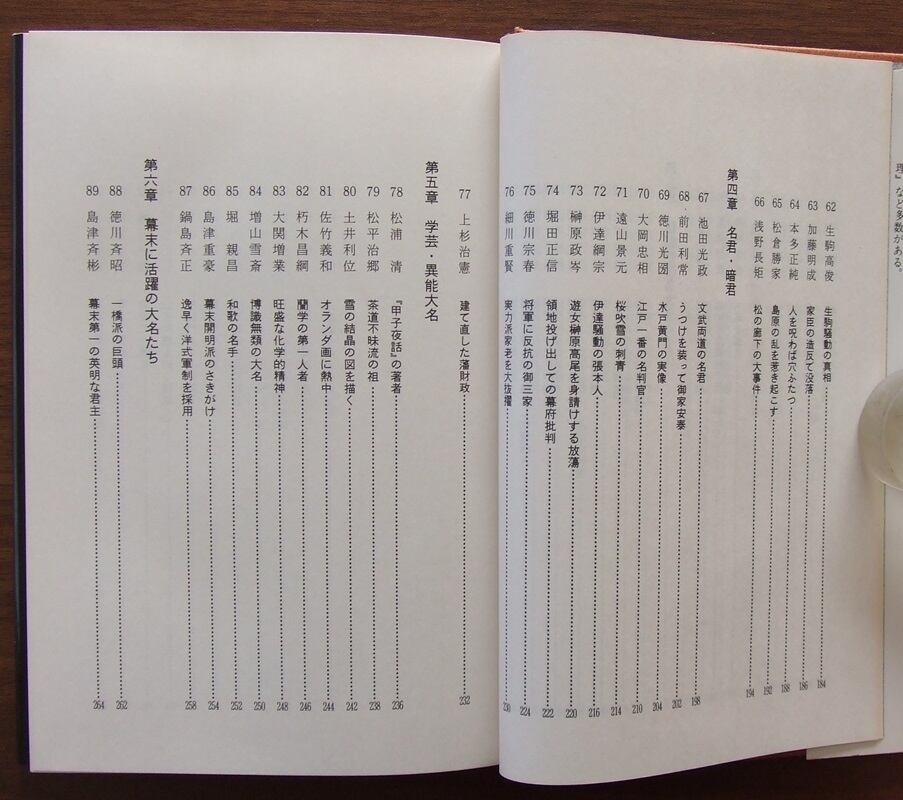 理』など多数がある。
62 生駒高俊 生駒騒動の真相……184
63 加藤明成 家臣の造反で没落……186
64 本多正純 人を呪わば穴ふたつ……188
65 松倉勝家 島原の乱を惹き起こす……192
66 浅野長矩 松の廊下の大事件……194
第四章 名君・暗君
67 池田光政 文武両道の名君……198
68 前田利常 うつけを装って御家安泰……202
69 徳川光圀 水戸黄門の実像……204
70 大岡忠相 江戸一番の名判官……210
71 遠山景元 桜吹雪の刺青……214
72 伊達綱宗 伊達騒動の張本人……216
73 榊原政岑 遊女榊原高尾を身請けする放蕩……220
74 堀田正信 領地投げ出しての幕府批判……222
75 徳川宗春 将軍に反抗の御三家……224
76 細川重賢 実力派家老を大抜擢……230
77 上杉治憲 建て直した藩財政……232
第五章 学芸・異能大名
78 松浦 清 『甲子夜話』の著者……236
79 松平治郷 茶道不昧流の祖……238
80 土井利位 雪の結晶の図を描く……242
81 佐竹義和 オランダ画に熱中……244
82 朽木昌綱 蘭学の第一人者……246
83 大関増業 旺盛な化学的精神……248
84 増山雪斎 博識無類の大名……250
85 堀 親昌 和歌の名手……252
86 島津重豪 幕末開明派のさきがけ……254
87 鍋島斉正 逸早く洋式軍制を採用……258
第六章 幕末に活躍の大名たち
88 徳川斉昭 一橋派の巨頭……262
89 島津斉彬 幕末第一の英明な君主……264